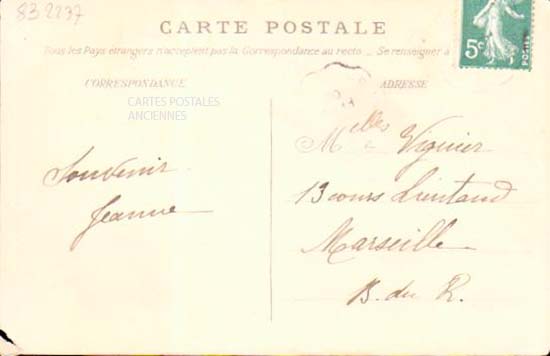 83 2237
CARTE POSTALE
Tous les Pays étrangers n'acceptent pas la Correspondance au recto - Se renseigner à
5c
CORRESPONDANCE
ADRESSE
CARTES POSTALES
ANCIENNES
Melles Viguier
Souvenir
Jeanne
13 cours Lieutaud
Marseille
B. du R.